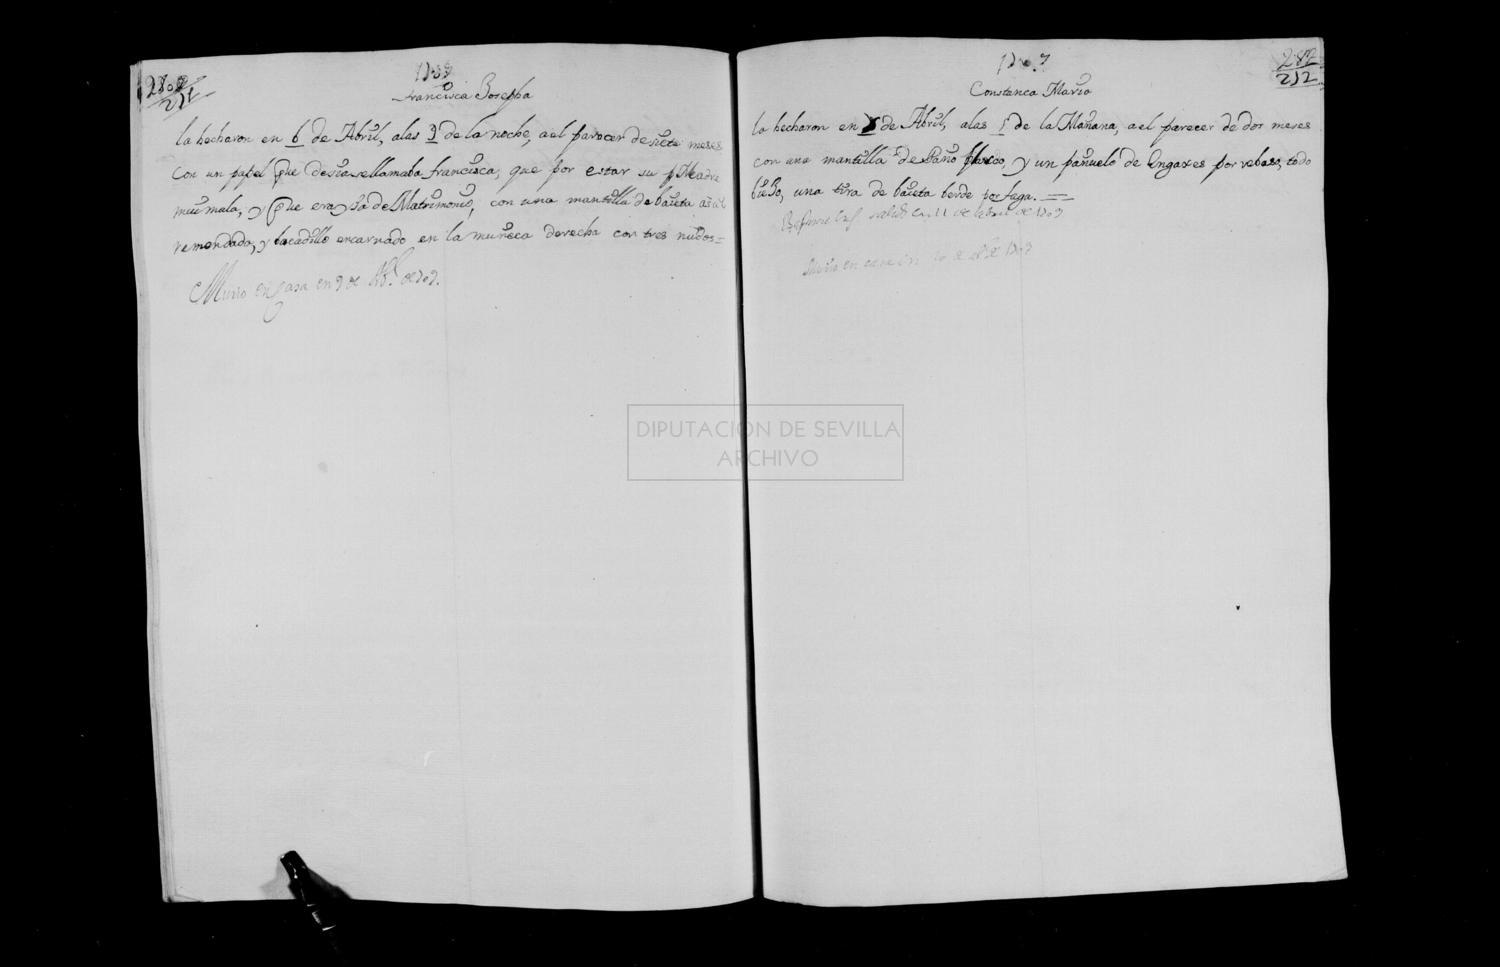 1709
Francisca Josepha
la hecharon en 6 de Abril, alas 9 de la noche, a el parecer de siete meses
con un papel que desia se llamaba francisca, que por estar su Madre
mui mala, y que era hija de Matrimonio, con una mantilla de baieta
remendada, y tocadillo encarnado en la muñeca derecha con tres nudos=
Murio en Casa en 9 de Abl. de 709.
282
1709
Constanca Maria
212
la hecharon en de Abril, alas 1 de la Mañana, a el parecer de dos meses
con una mantilla de Paño y un pañuelo de Engaxes por reboso, todo
una tira de baieta berde por faga.=
salio en 11 de de 1709
Murio en de 1709
DIPUTACIÓN DE SEVILLA
ARCHIVO